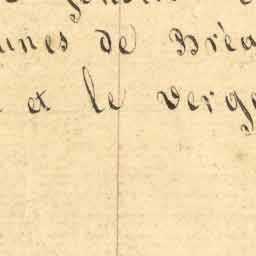 unes de Bréa
et le verge